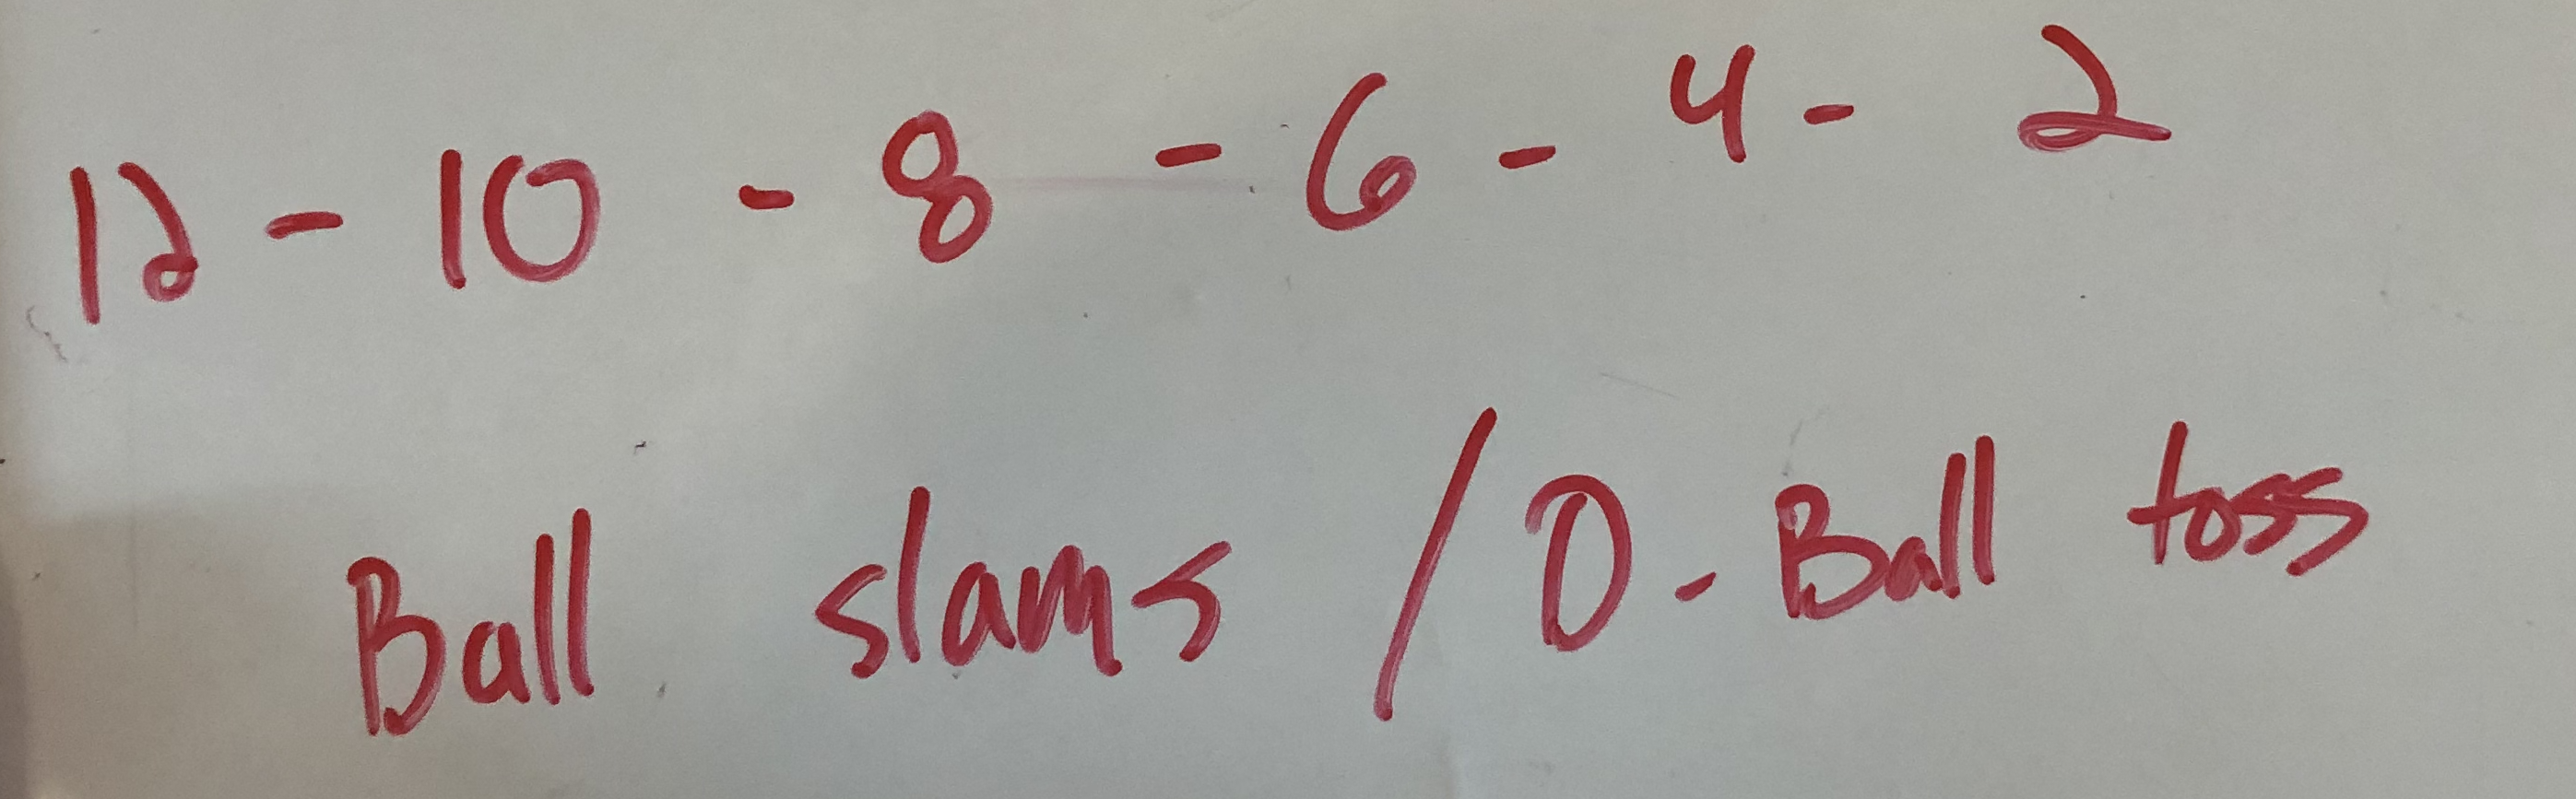 12 - 10 - 8 - 6 - 4 - 2
Ball slams / D-Ball toss